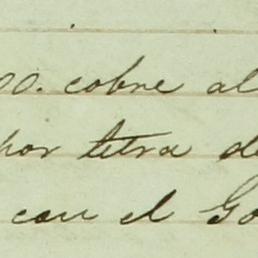 00. cobre al
por letra de
con el Go